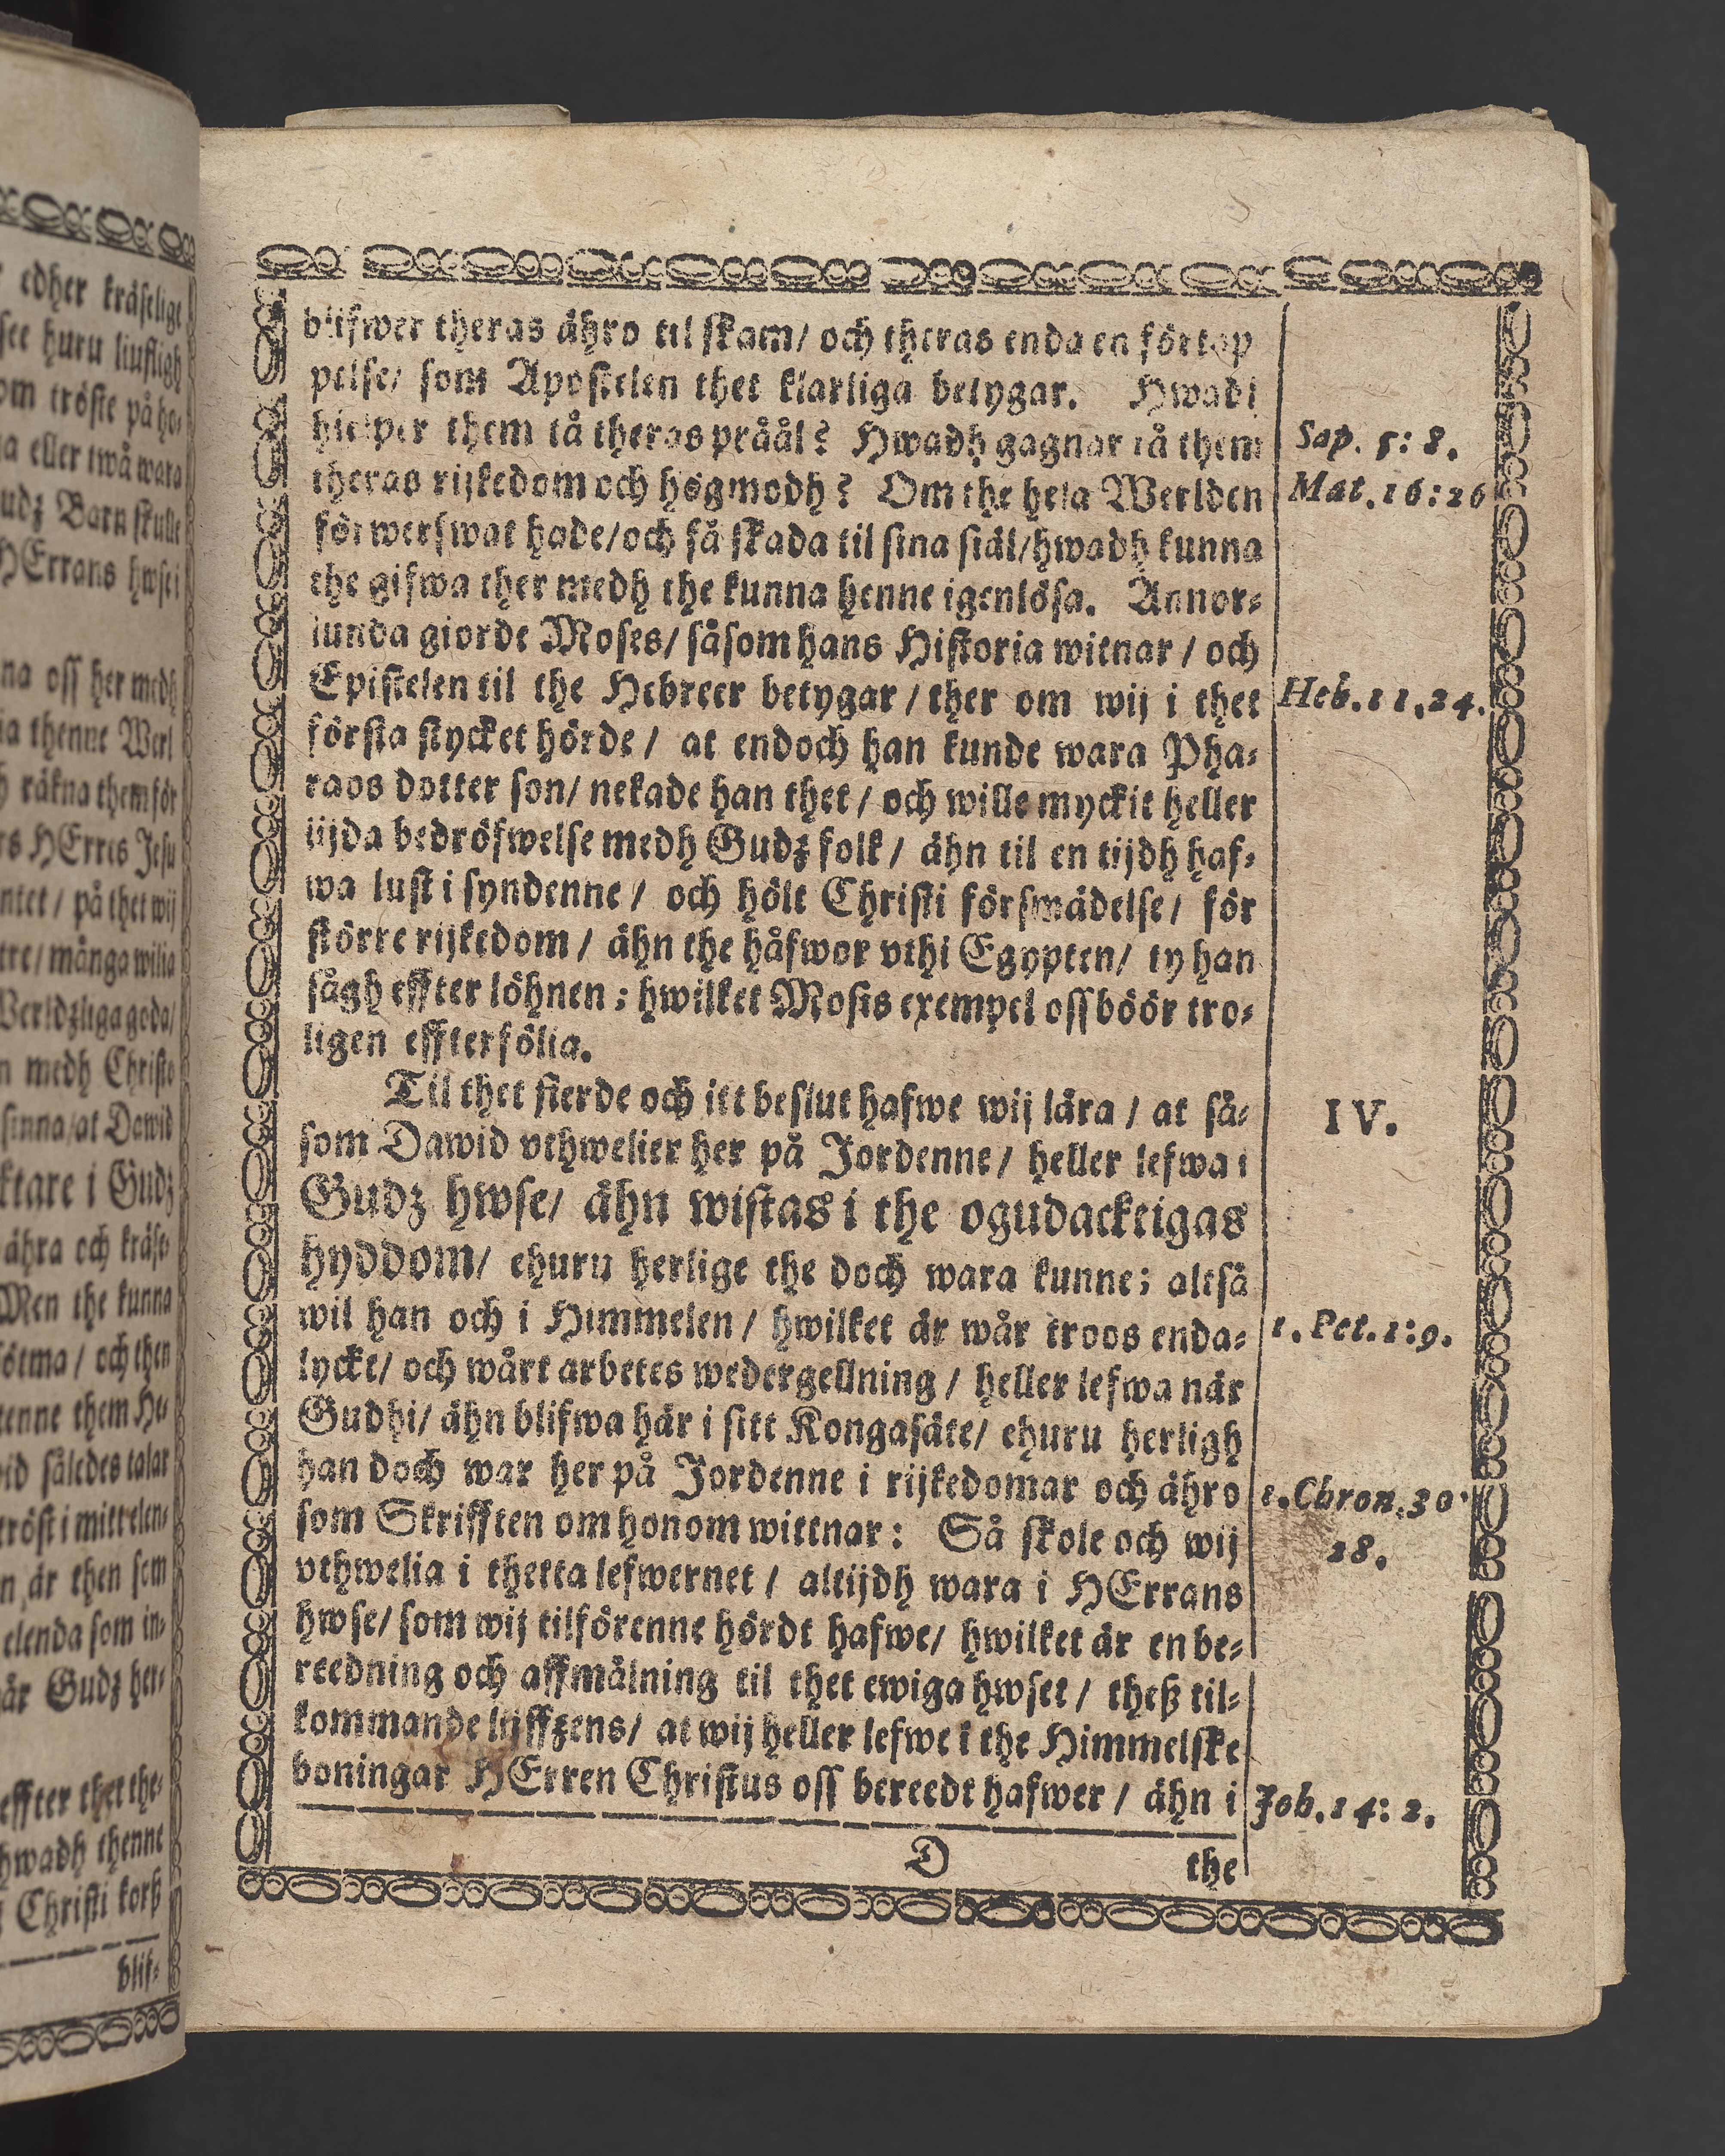 edher kräseligt
see huru liufligh
om tröste på ho-
a eller twå wara
udz Barn skulle
HErrans hwsei
na oss her medh
ia thenne Werl
h räkna them för
rs HErres Jesu
ntet / på thet wij
tre / många wilia
Werldzliga goda/
n medh Christo
sinna/at Dawid
ktare i Gudz
ähra och kräse
Men the kunna
sötma / och then
kenne them He-
id således talar
tröst i mittelen-
n är then som
elenda som in-
är Gudz her-
effter thet the-
hwadh thenne
Christi korß
blif-
blifwer theras ähro til skam/ och theras enda en förtap
pelse/ som Apostelen thet klarliga betygar. Hwadh
hielper them tå theras pråål? Hwadh gagnar tå them
Sap. 5: 8.
theras rijkedom och högmodh? Om the hela Werlden
Mat. 16: 26
förwerfwat hade/och få skada til sina siäl/hwadh kunna
the gifwa ther medh the kunna henne igenlösa. Annor-
lunda giorde Moses/ såsom hans Historia witnar / och
Epistelen til the Hebreer betygar / ther om wij i thet
Heb. 11, 24.
första stycket hörde / at endoch han kunde wara Pha-
raos dotter son/ nekade han thet / och wille myckit heller
lijda bedröfwelse medh Gudz folk / ähn til en tijdh haf-
wa lust i syndenne / och hölt Christi försmädelse / för
större rijkedom / ähn the håfwor vthi Egypten/ ty han
sågh effter löhnen; hwilket Mosis exempel oss böör tro-
ligen effterfölia.
Til thet fierde och itt beslut hafwe wij lära / at så-
IV.
som Dawid vthwelier her på Jordenne / heller lefwa i
Gudz hwse/ ähn wistas i the ogudacktigas
hyddom/ ehuru herlige the doch wara kunne; altså
wil han och i Himmelen / hwilket är wår troos enda-
1. Pet. 1: 9.
lyckt/ och wårt arbetes wedergellning / heller lefwa när
Gudhi/ ähn blifwa här i sitt Kongasäte/ ehuru herligh
han doch war her på Jordenne i rijkedomar och ähro
1. Chron. 30.
som Skrifften om honom wittnar: Så skole och wij
28.
vthwelia i thetta lefwernet / altijdh wara i HErrans
hwse/ som wij tilförenne hördt hafwe/ hwilket är en be-
reedning och affmålning til thet ewiga hwset / theß til-
kommande lijffzens/ at wij heller lefwe i the Himmelske
boningar HErren Christus oss bereedt hafwer / ähn i
Joh. 14: 2.
D
the